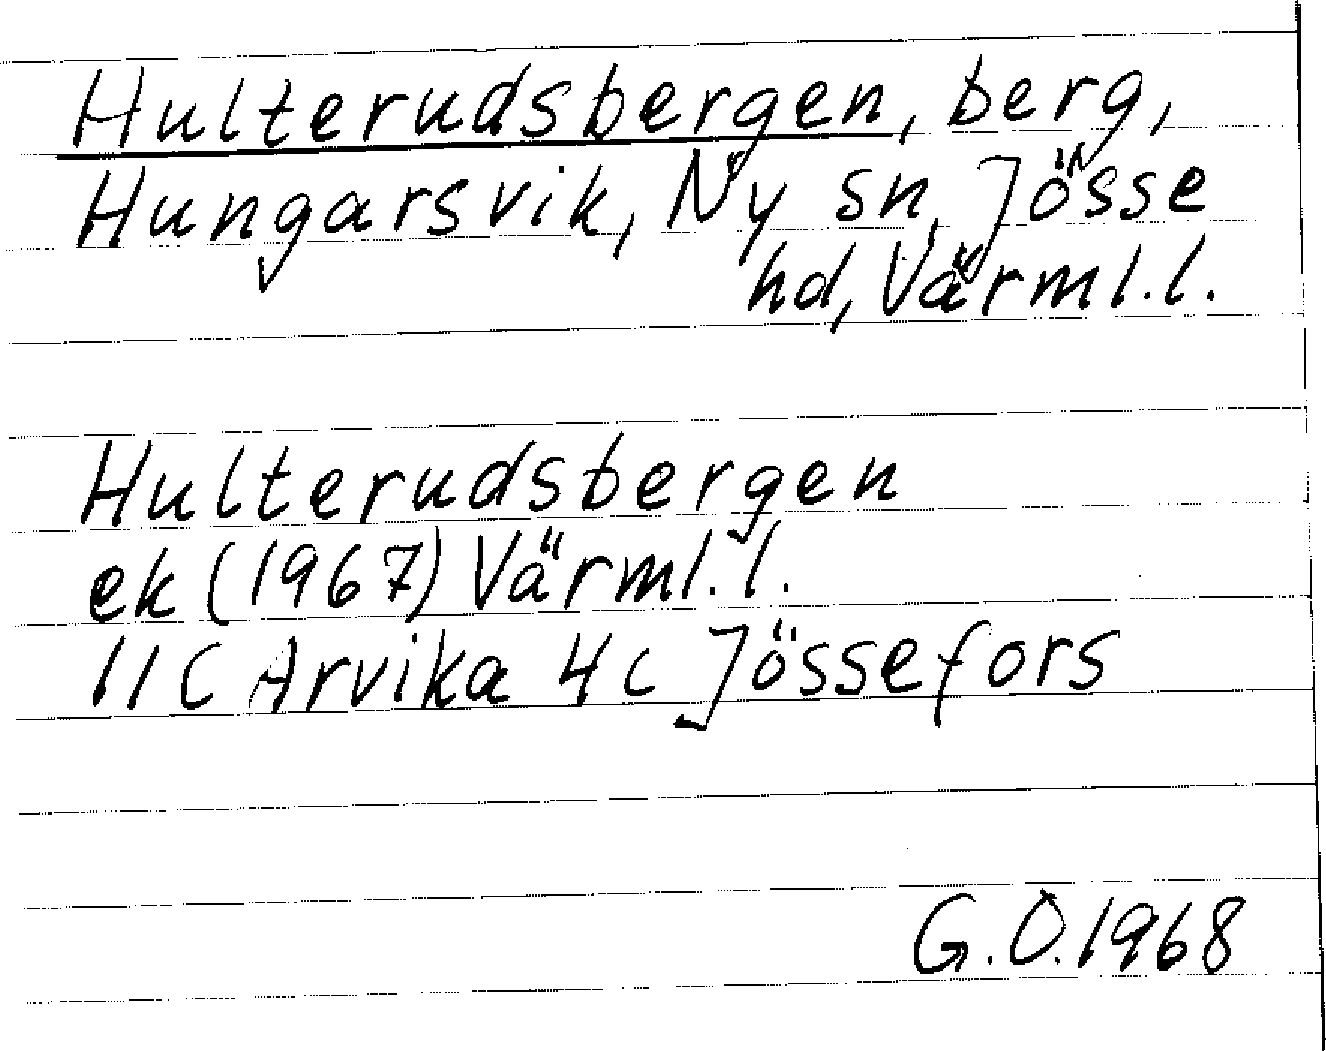 Hulterudsbergen, berg,
Hungarsvik, Ny sn, Jösse
hd, Värml.l.
Hulterudsbergen
ek (1967) Värml.l.
11C Arvika 4c Jössefors
G.O.1968